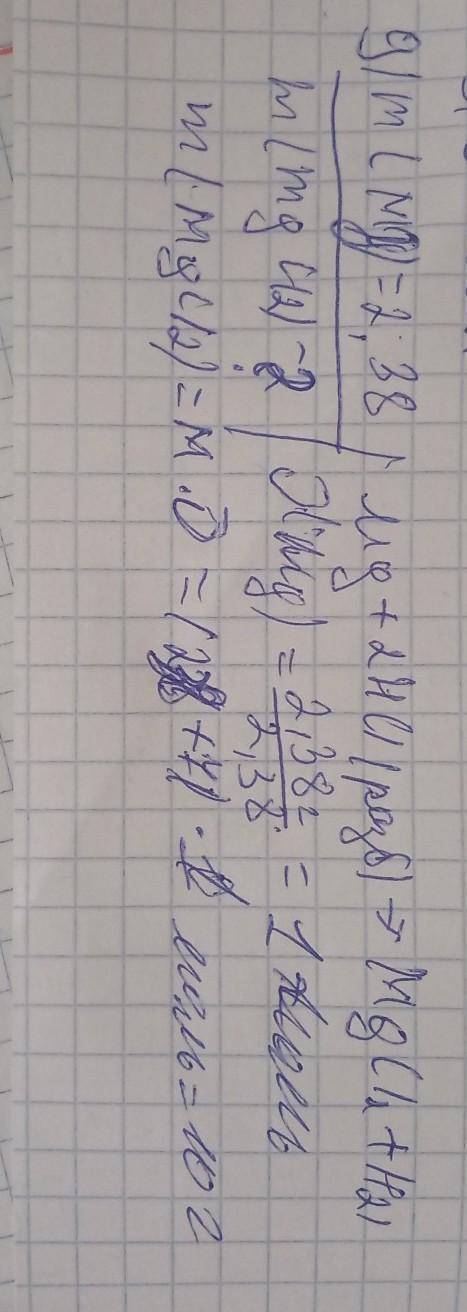 g) m(Mg) = 2,38 Mg + 2HCl (разб) → MgCl₂ + H₂)
m(MgCl2) - ? ϑ(Mg) = 2,38 г / 2,38 = 1 моль
m(MgCl2) = M · ϑ = · моль = 10 г